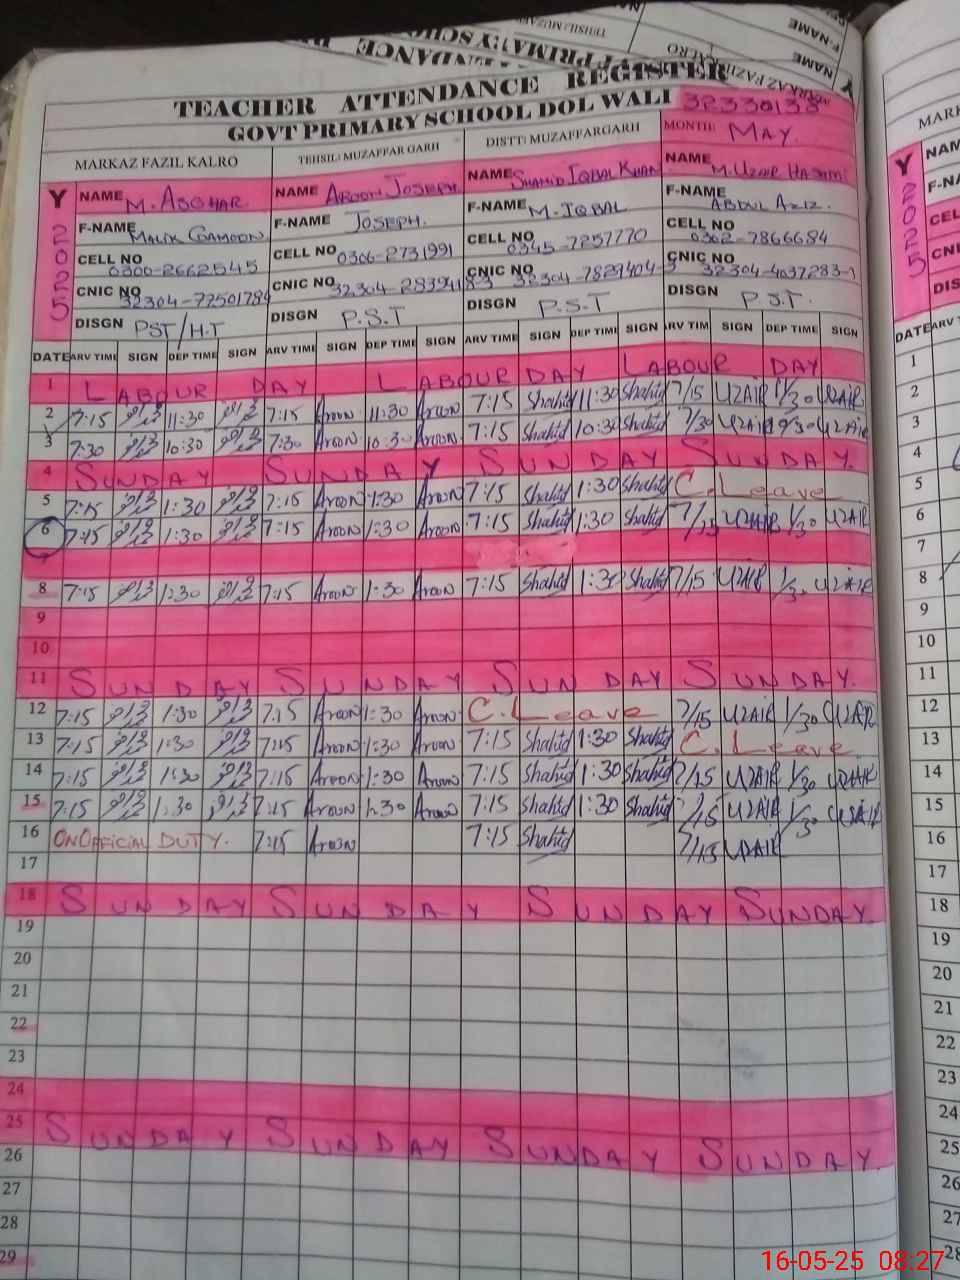 TEACHER ATTENDANCE REGISTER
GOVT PRIMARY SCHOOL DOL WALI 32330133
MARKAZ FAZIL KALRO TEHSIL: MUZAFFAR GARH DISTT: MUZAFFARGARH MONTH: MAY.
Y 2025
NAME M. ASGHAR NAME AROON JOSEPH NAME SHAHID IQBAL KHAN NAME M. UZAIR HASHMI
F-NAME MALIK F-NAME JOSEPH. F-NAME M. IQBAL F-NAME ABDUL AZIZ.
CELL NO 0300-2662545 CELL NO 0306-2731991 CELL NO 0345-7257770 CELL NO 0302-7866684
CNIC NO 32304-72501784 CNIC NO CNIC NO 32304-7829404-3 CNIC NO 32304-4037283-1
DISGN PST/H.T DISGN P.S.T DISGN P.S.T DISGN P.S.T.
DATE ARV TIME SIGN DEP TIME SIGN ARV TIME SIGN DEP TIME SIGN ARV TIME SIGN DEP TIME SIGN ARV TIME SIGN DEP TIME SIGN
1 LABOUR DAY LABOUR DAY LABOUR DAY
2 7:15 11:30 7:15 Aroon 11:30 Aroon 7:15 Shahid 11:30 Shahid 7/15 UZAIR 1/30 UZAIR
3 7:30 10:30 7:30 Aroon 10:30 Aroon 7:15 Shahid 10:30 Shahid 7/30 UZAIR UZAIR
4 SUNDAY SUNDAY SUNDAY SUNDAY.
5 7:15 1:30 7:15 Aroon 1:30 Aroon 7:15 Shahid 1:30 Shahid C. Leave
6 7:15 1:30 7:15 Aroon 1:30 Aroon 7:15 Shahid 1:30 Shahid 7/15 UZAIR 1/30 UZAIR
7
8 7:15 1:30 7:15 Aroon 1:30 Aroon 7:15 Shahid 1:30 Shahid 7/15 UZAIR 1/30 UZAIR
9
10
11 SUNDAY SUNDAY SUNDAY SUNDAY.
12 7:15 1:30 7:15 Aroon 1:30 Aroon C. Leave 7/15 UZAIR 1/30 UZAIR
13 7:15 1:30 7:15 Aroon 1:30 Aroon 7:15 Shahid 1:30 Shahid C. Leave
14 7:15 1:30 7:15 Aroon 1:30 Aroon 7:15 Shahid 1:30 Shahid 7/15 UZAIR 1/30 UZAIR
15 7:15 1:30 7:15 Aroon 1:30 Aroon 7:15 Shahid 1:30 Shahid 7/15 UZAIR 1/30 UZAIR
16 ON OFFICIAL DUTY. 7:15 Aroon 7:15 Shahid 7/15 UZAIR
17
18 SUNDAY SUNDAY SUNDAY SUNDAY.
19
20
21
22
23
24
25 SUNDAY SUNDAY SUNDAY SUNDAY.
26
27
28
29
16-05-25 08:27